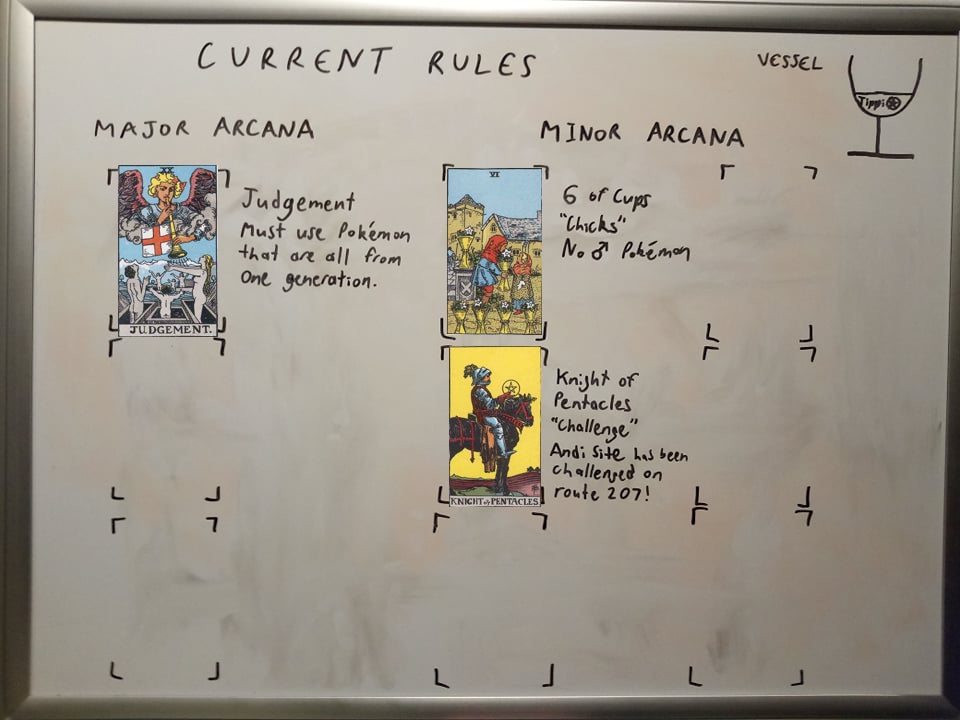 CURRENT RULES
VESSEL
Tippi
MAJOR ARCANA
MINOR ARCANA
XX
JUDGEMENT.
Judgement
Must use Pokémon
that are all from
One generation.
VI
6 of Cups
"Chicks"
No ♂ Pokémon
KNIGHT of PENTACLES
Knight of
Pentacles
"Challenge"
Andi Site has been
challenged on
route 207!